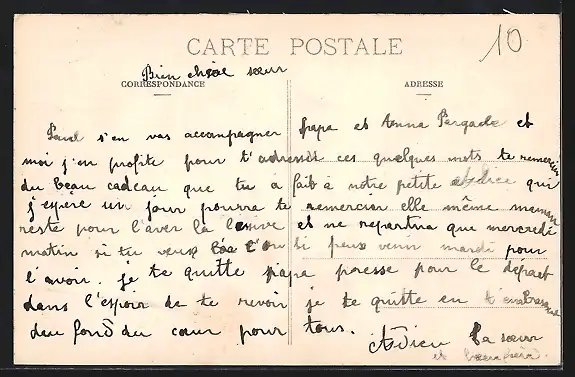 CARTE POSTALE
10
Bien chère sœur
CORRESPONDANCE
ADRESSE
Paul s'en vas accompagner papa et Anna Pergade et
moi j'en profite pour t'adresser ces quelques mots te remercier
du beau cadeau que tu à fait à notre petite qui
j'espère un jour pourra te remercier elle même maman
reste pour l'aver la lesive et ne repartira que mercredi
matin si tu veux si peux venir mardi pour
l'avoir. je te quitte papa presse pour le départ
dans l'espoir de te revoir je te quitte en t'embrassant
deu fond du cœur pour tous.
Adieu ta sœur
et beau frère.